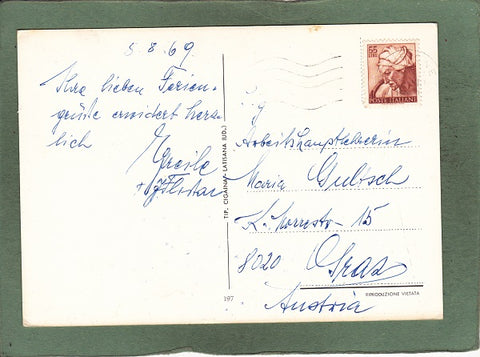 5.8.69
Ihre lieben Ferien-
grüße erwidert herz-
lich
55
LIRE
POSTE ITALIANE
TIP. CIGAINA - LATISANA (UD.)
Arbeitshauptlehrerin
Maria Gubisch
15
8020 Graz
Austria
197
RIPRODUZIONE VIETATA